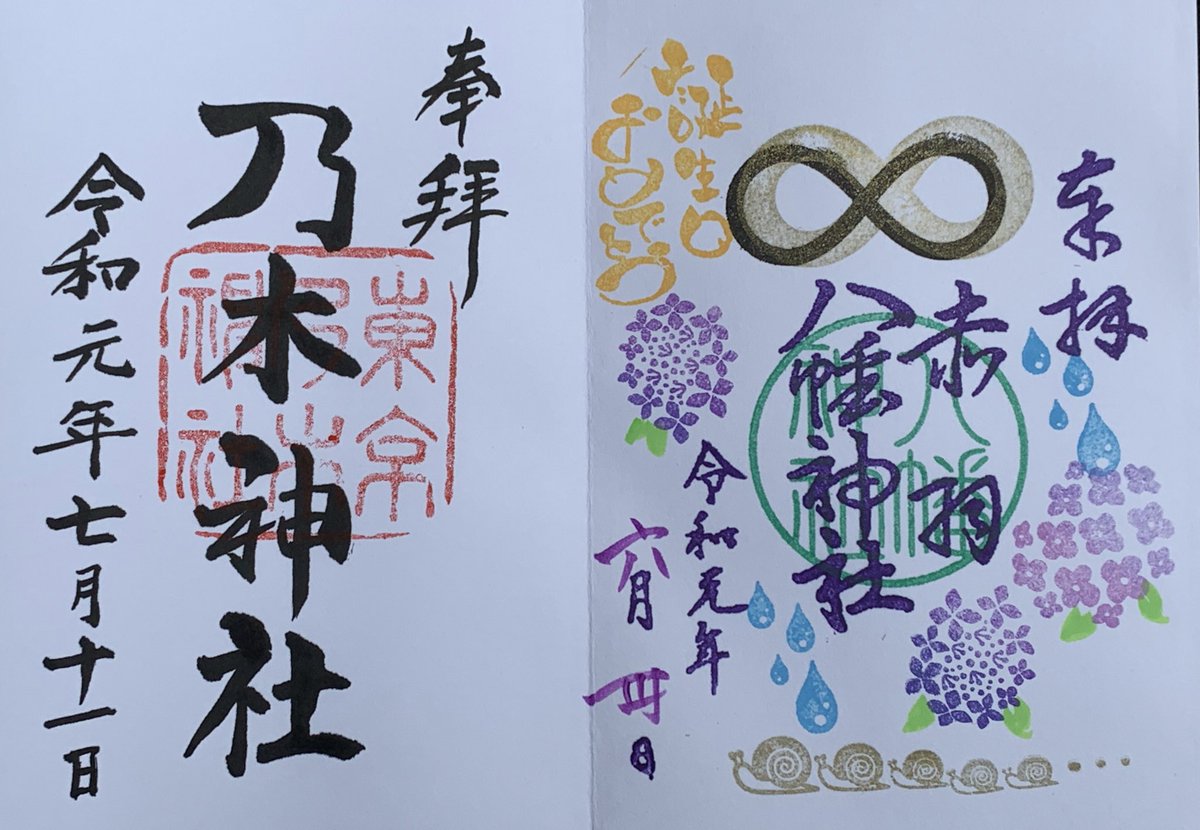 奉拝
赤羽
八幡神社
八幡
神社
お誕生日
おめでとう
令和元年
六月卅日
奉拝
乃木神社
東京
乃木
神社
令和元年七月十一日